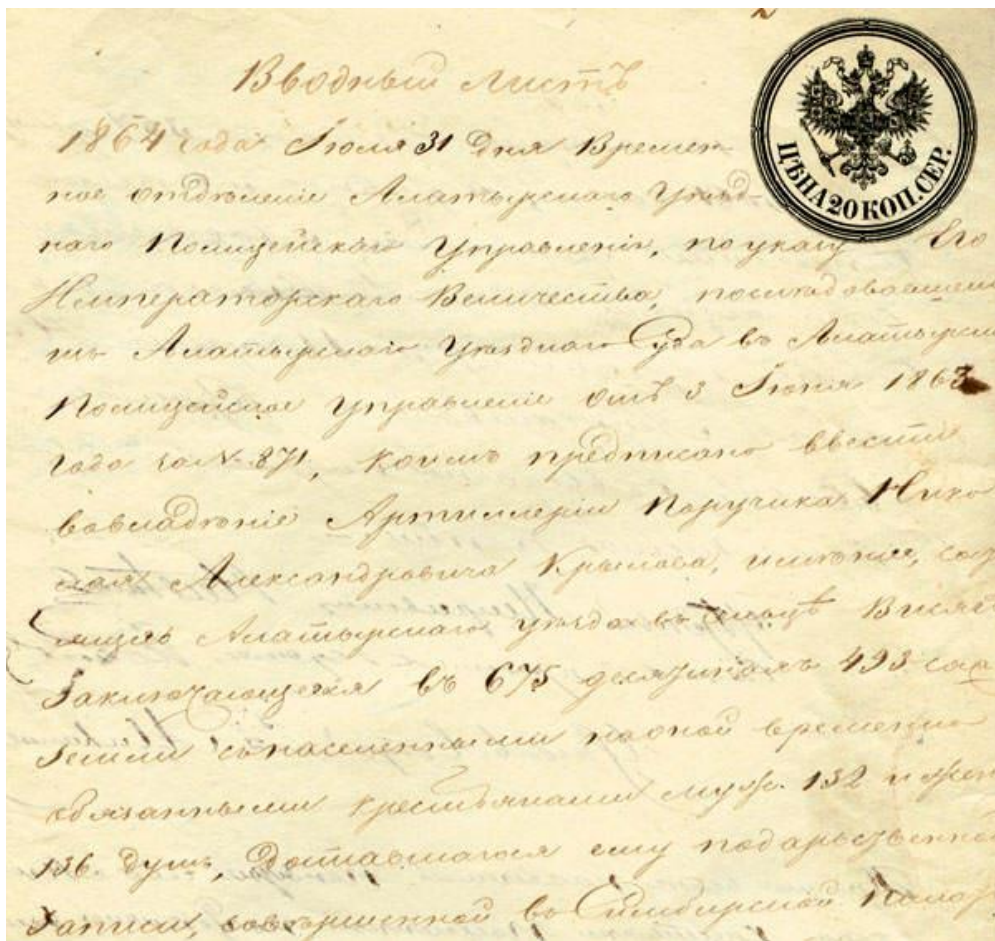 Вводный листъ
ЦѢНА 20 КОП. СЕР.
1864 года Іюля 31 дня Времен-
ное отдѣленіе Алатырскаго Уѣзд-
наго Полицейскаго Управленія, по указу Его
Императорскаго Величества, послѣдовавшему
изъ Алатырскаго Уѣзднаго Суда въ Алатырское
Полицейское Управленіе отъ 3 Іюня 1863
года за № 871, коимъ предписано ввести
во владѣніе Артиллеріи Поручика Нико
лая Александровича Крылова, имѣніе, со
Алатырскаго уѣзда въ
Заключающееся въ 675 десятинахъ 493 саж
земли съ населенными на оной временно
обязанными крестьянами муж. 132 и жен
136 душъ, доставшагося ему по дарственной
записи, совершенной въ Симбирской Палат